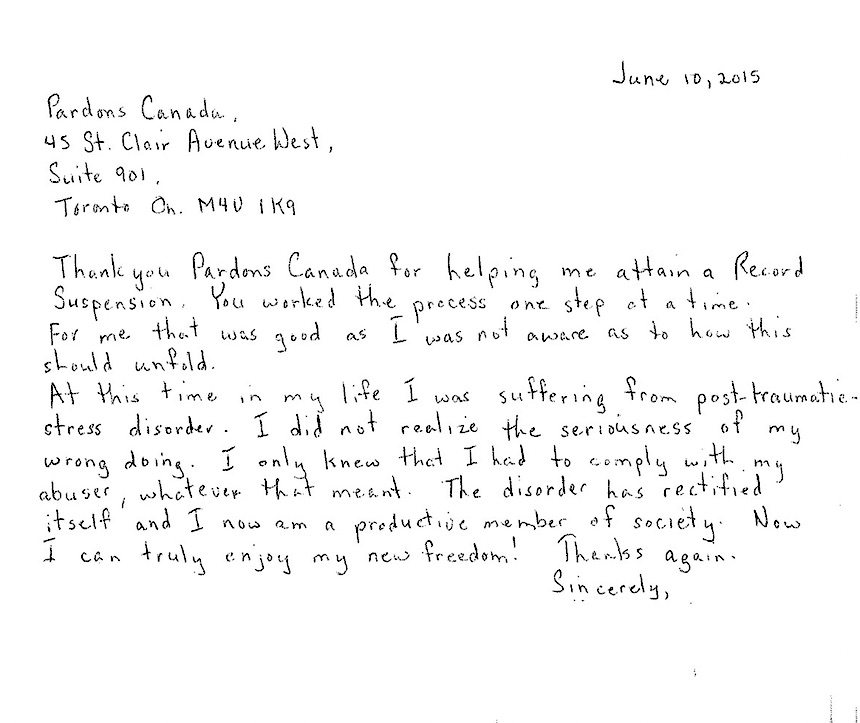 June 10, 2015
Pardons Canada,
45 St. Clair Avenue West,
Suite 901,
Toronto On. M4V 1K9
Thank you Pardons Canada for helping me attain a Record
Suspension. You worked the process one step at a time.
For me that was good as I was not aware as to how this
should unfold.
At this time in my life I was suffering from post-traumatic-
stress disorder. I did not realize the seriousness of my
wrong doing. I only knew that I had to comply with my
abuser, whatever that meant. The disorder has rectified
itself and I now am a productive member of society. Now
I can truly enjoy my new freedom! Thanks again.
Sincerely,